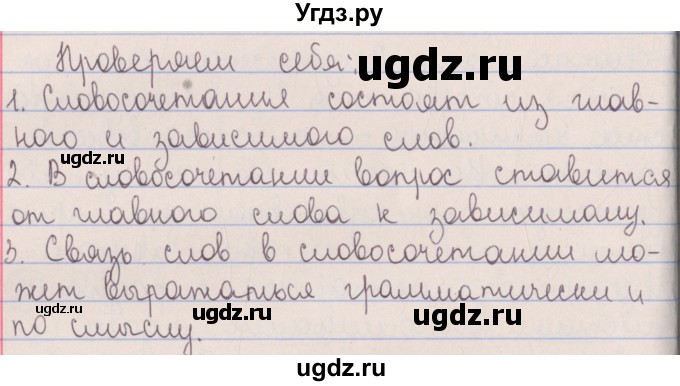 Угдз.ру
Проверяем себя:
ugdz.ru
1. Словосочетания состоят из глав-
ного и зависимого слов.
ugdz.ru
ugdz.ru
2. В словосочетании вопрос ставится
от главного слова к зависимому.
ugdz.ru
3. Связь слов в словосочетании мо-
жет выражаться грамматически и
ugdz.ru
ugdz.ru
по смыслу.
ugdz.ru
ugdz.ru